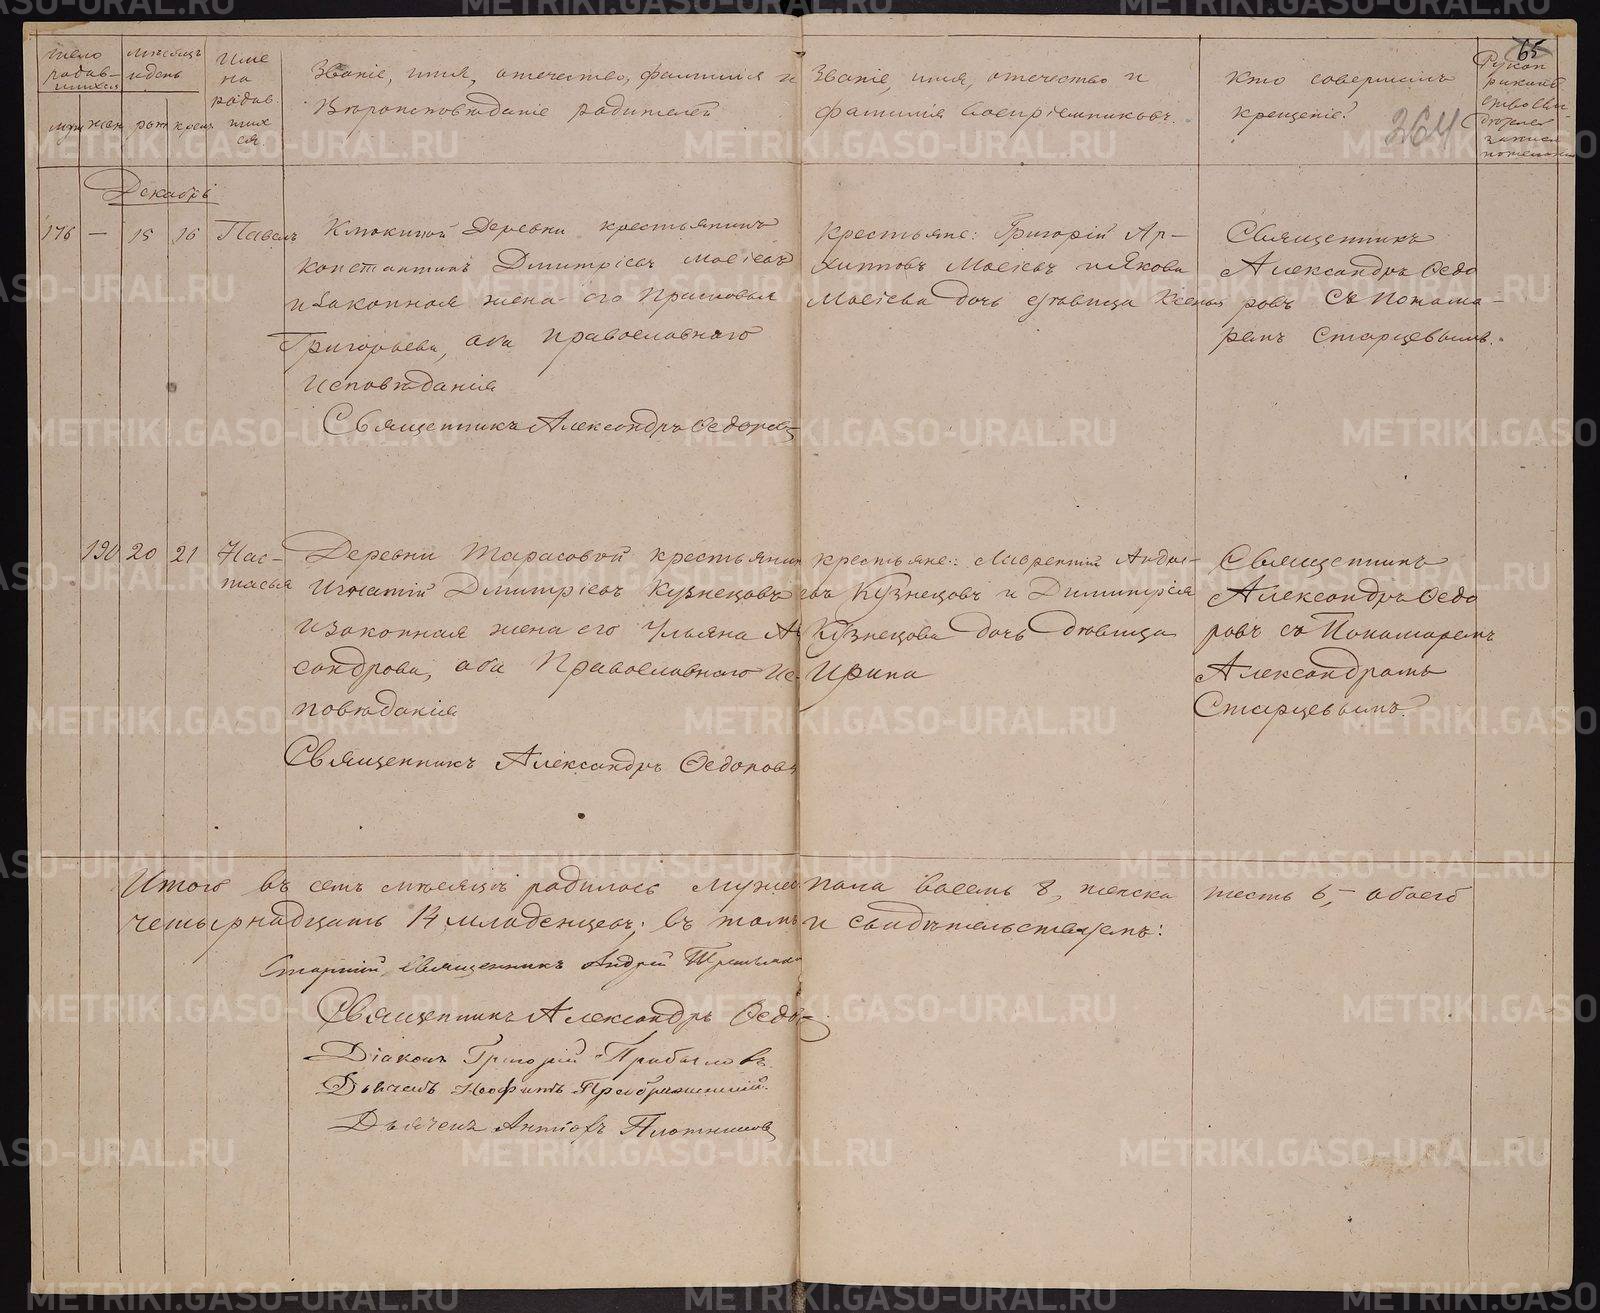 65
364
Число родив-шихся
Мѣсяцъ и день
Имя на родив шихся.
Званіе, имя, отечество, фамилія и
Вѣроисповѣданіе родителей
Званіе, имя, отечество и
фамилія воспріемниковъ.
Кто совершилъ
крещеніе?
муж жен рож крещ
Декабрь
176 — 15 16 Павелъ
деревни крестьянинъ
Константинъ Дмитріевъ Мосіевъ
и законная жена его Прасковья
Григорьева, оба православнаго
исповѣданія
Священникъ Александръ Ѳедоровъ
Крестьяне: Григорій Ар-
хиповъ Мосіевъ и Якова
Мосіева дочь дѣвица Ксенья
Священникъ
Александръ Ѳедо
ровъ съ Понама-
ремъ Старцевымъ.
190 20 21 Нас-
тасья
Деревни Тарасовой крестьянин
Игнатій Дмитріевъ Кузнецовъ
и законная жена его Ульяна Ак
сандрова, оба Православнаго Ис-
повѣданія
Священникъ Александръ Ѳедоровъ
крестьяне: Лаврентій
Кузнецовъ и Димитрія
Кузнецова дочь дѣвица
Ирина
Священникъ
Александръ Ѳедо
ровъ съ Понамаремъ
Александромъ
Старцевымъ.
Итого въ семъ мѣсяцѣ родилось мужес пола восемь 8, женска шесть 6,— обоего
четырнадцать 14 младенцевъ; въ томъ и свидѣтельствуемъ:
Старшій священникъ Андрей
Священникъ Александръ Ѳедо-
Діаконъ Григорій
Дьячекъ Неофитъ Преображенскій.
Дьячекъ Плотниковъ
METRIKI.GASO-URAL.RU